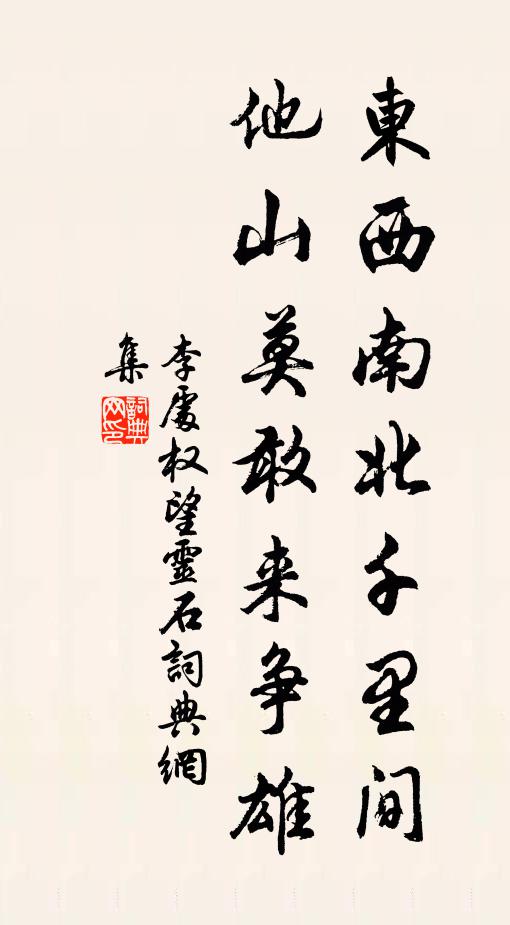 東西南北千里间
他山莫敢来争雄
李處权望靈石詞典網
集
詞典网印